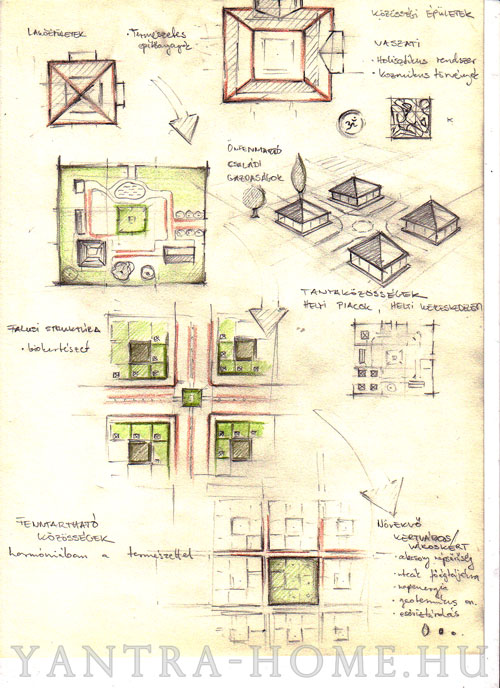 LAKÓÉPÜLETEK
• Természetes
építőanyagok
KÖZÖSSÉGI ÉPÜLETEK
VASZATI
• Holisztikus rendszer
• Kozmikus törvények
ÖNFENNTARTÓ
CSALÁDI
GAZDASÁGOK
TANYAKÖZÖSSÉGEK
HELYI PIACOK, HELYI KERESKEDELEM
FALUSI STRUKTÚRA
• biokertészet
FENNTARTHATÓ
KÖZÖSSÉGEK
harmóniában a természettel
NÖVEKVŐ
KERTVÁROS/
VÁROSKERT
• alacsony népsűrűség
• utcák főégtájakra
• napenergia
• geotermikus en.
YANTRA-HOME.HU